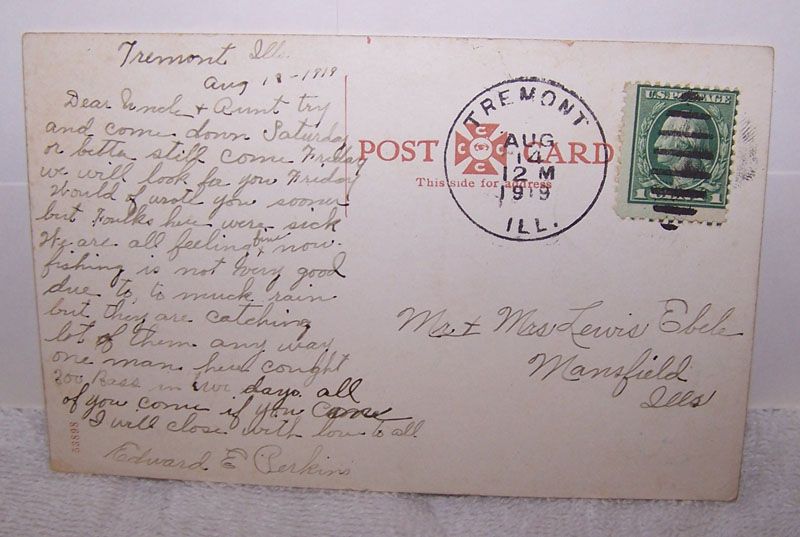 Tremont Ills.
Aug 18-1919
Dear Uncle & Aunt try
and come down Saturday
or betta still come Friday
we will look for you Friday
Would of wrote you sooner
but Foulks here were sick
We are all feeling fine now.
fishing is not very good
due to, to much rain
but they are catching
lot of them any way
one man here cought
200 Bass in two days all
of you come if you can
I will close with love to all
Edward E Perkins
53898
POST CARD
This side for address
TREMONT
AUG
14
12 M
1919
ILL.
U.S. POSTAGE
1 1
Mr & Mrs Lewis Ebele
Mansfield
Ills